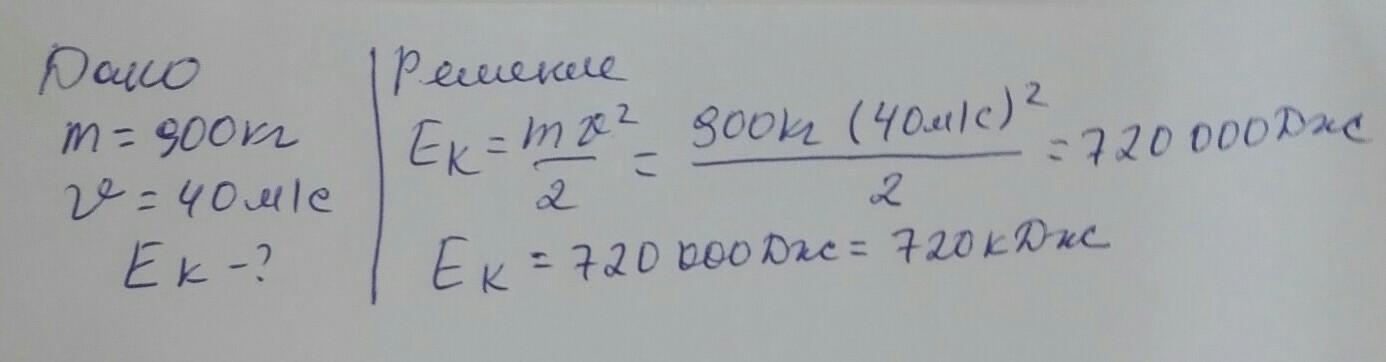 Дано
m = 900кг
v = 40 м/с
Eк -?
Решение
Eк = mv²/2 = 900кг (40м/с)²/2 = 720 000Дж
Eк = 720 000Дж = 720кДж